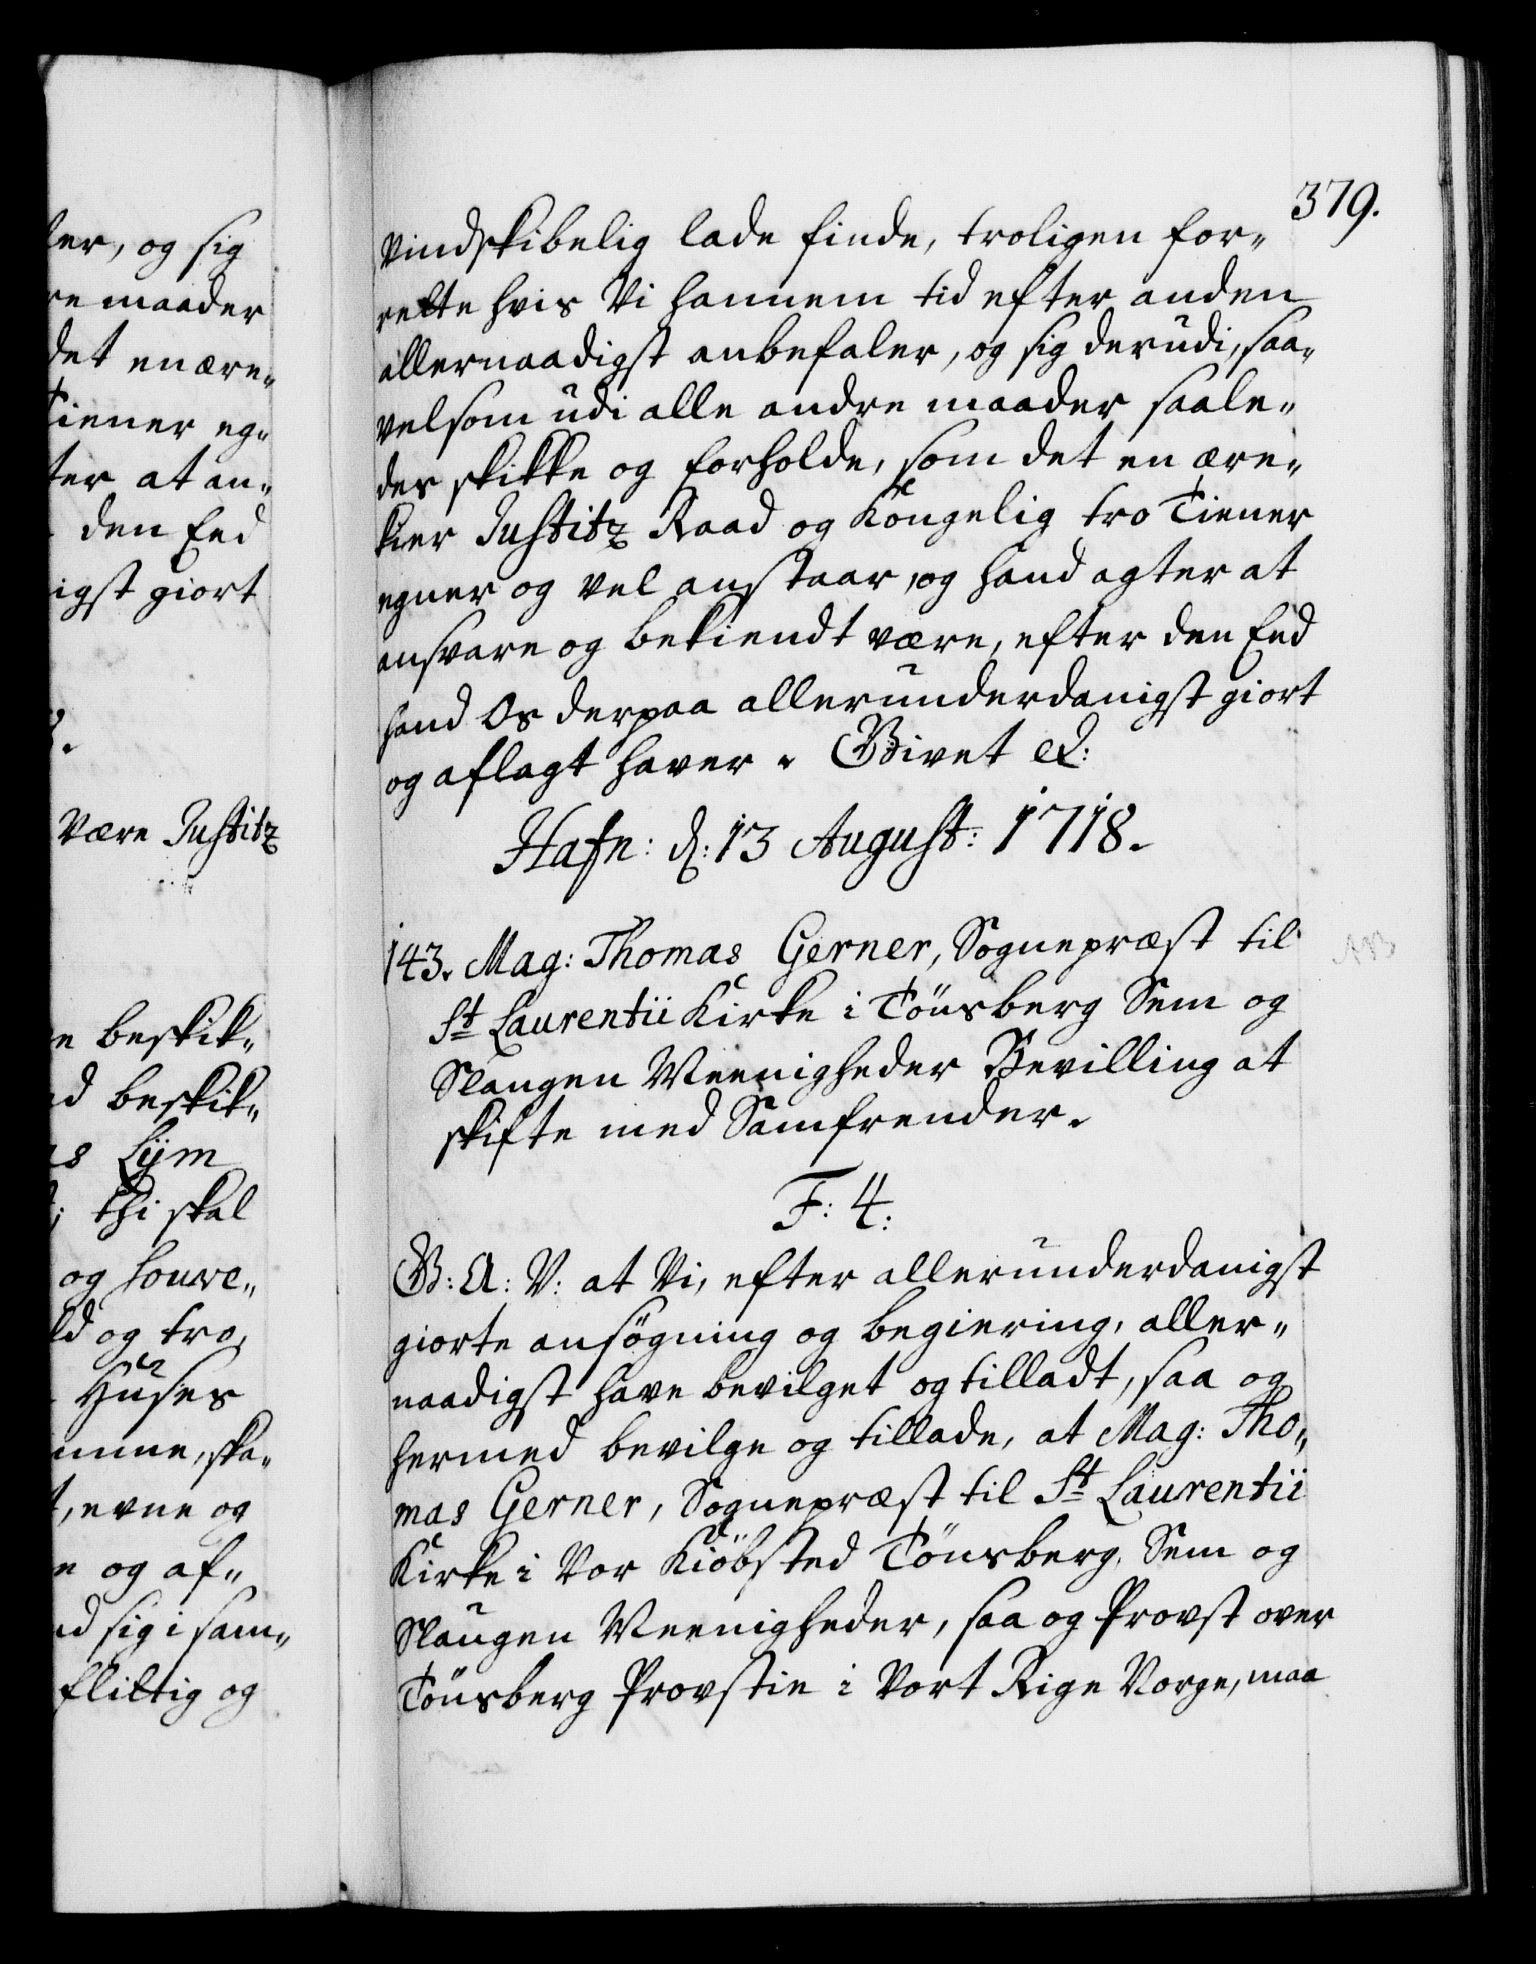 ter, og sig
re maader
det en ære-
Tiener eg-
ter at an-
den Eed
igst giort
Være Justitz
n beskik-
d beskik-
s Lijm
thi skal
og Souve-
ld og tro,
Huses
emme, ska-
t, evne og
n og af-
d sig i sam-
flittig og
379.
vindskibelig lade finde, troligen for-
rette hvis Vi hannem tid efter anden
allernaadigst anbefaler, og sig derudi, saa-
velsom udi alle andre maader saale-
des skikke og forholde, som det en ære-
kier Justitz Raad og Kongelig tro Tiener
egner og vel anstaar, og hand agter at
ansvare og bekiendt være, efter den Eed
hand Os derpaa allerunderdanigst giort
og aflagt haver. Givet etc:
Hafn: d: 13 August: 1718.
143. Mag: Thomas Gerner, Sognepræst til
St Laurentii Kirke i Tönsberg Sem og
Slaugen Meenigheder Bevilling at
skifte med Samfrender.
F: 4:
G: A: V: at Vi, efter allerunderdanigst
giorte ansögning og begiering, aller-
naadigst have bevilget og tilladt, saa og
hermed bevilge og tillade, at Mag: Tho-
mas Gerner, Sognepræst til St Laurentii
Kirke i Vor Kiöbsted Tönsberg, Sem og
Slaugen Meenigheder, saa og Provst over
Tönsberg Provstie i Vort Rige Norge, maa